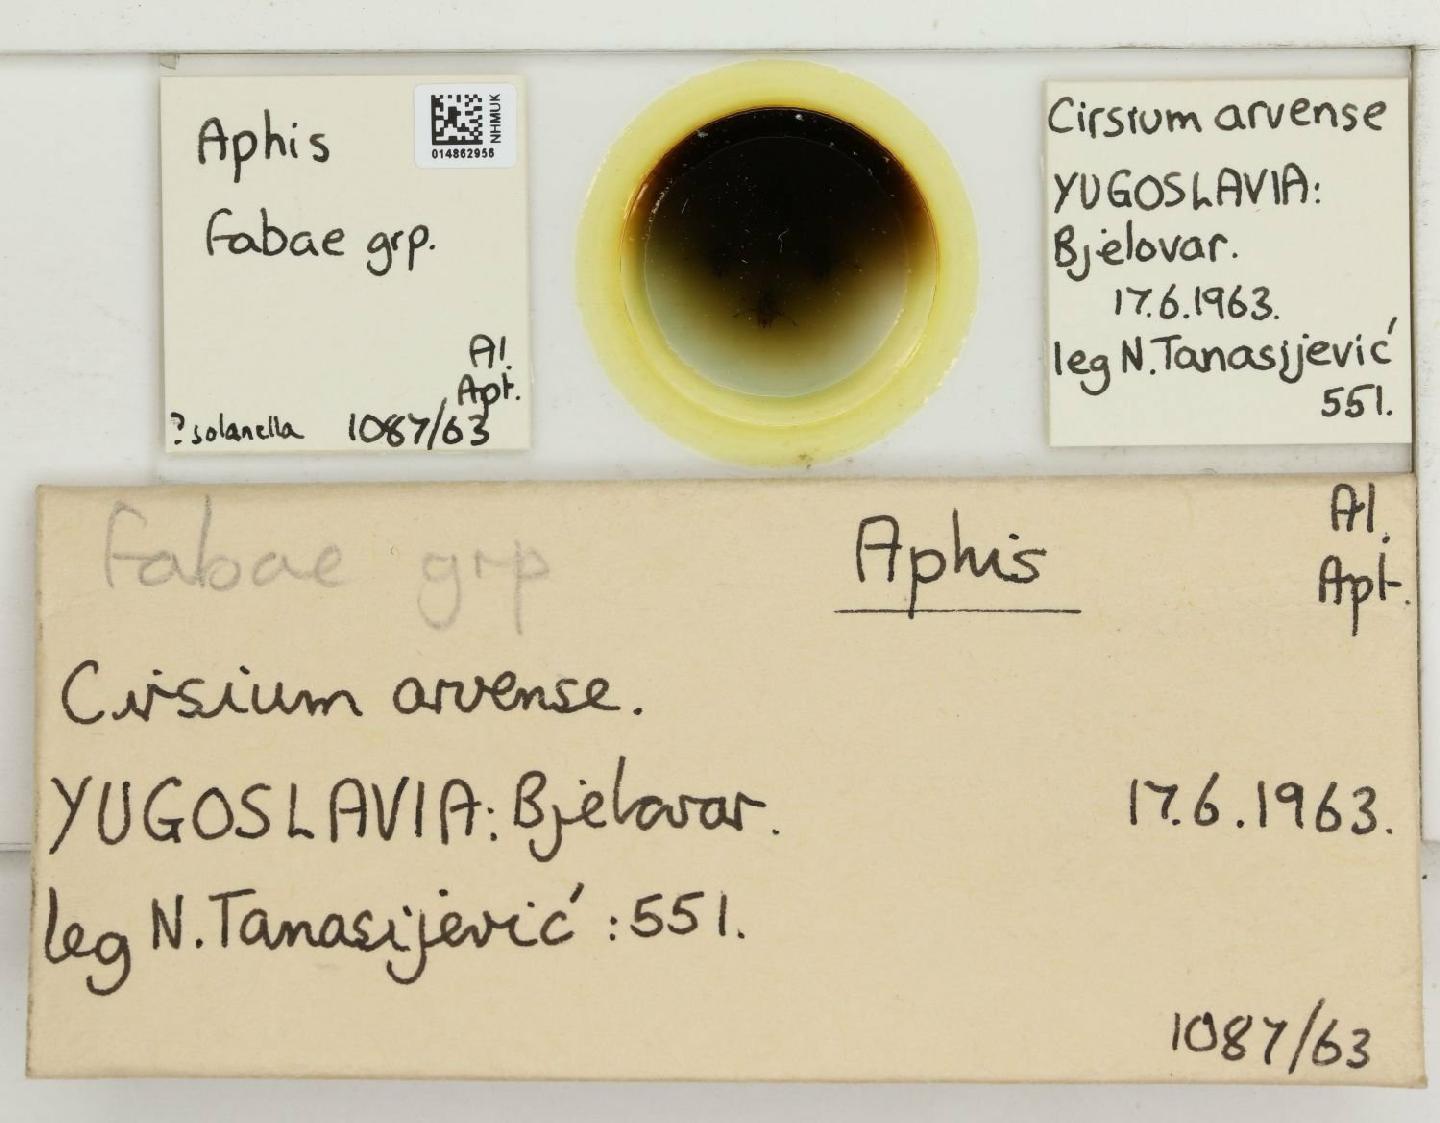 Aphis
fabae grp.
Al.
Apt.
? solanella 1087/63
NHMUK
014862956
Cirsium arvense
YUGOSLAVIA:
Bjelovar.
17.6.1963.
leg N.Tanasijević
551.
fabae grp
Aphis
Al.
Apt.
Cirsium arvense.
YUGOSLAVIA: Bjelovar. 17.6.1963.
leg N.Tanasijević : 551.
1087/63